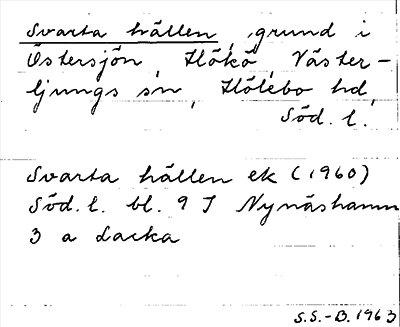 Svarta hällen, grund i
Östersjön, Hökö, Väster-
ljungs sn, Hölebo hd,
Söd. l.
Svarta hällen ek (1960)
Söd. l. bl. 9 I Nynäshamn
3 a Lacka
S.S.-B. 1963